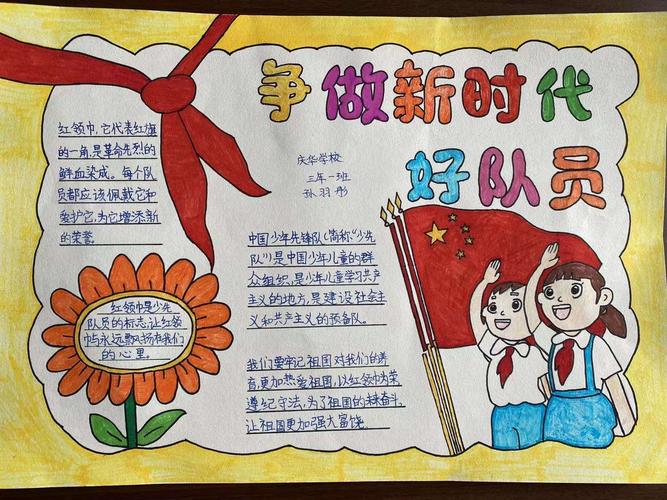 争做新时代
好队员
庆华学校
三年一班
孙羽彤
红领巾,它代表红旗
的一角,是革命先烈的
鲜血染成。每个队
员都应该佩戴它和
爱护它,为它增添新
的荣誉。
红领巾是少先
队员的标志,让红领
巾永远飘扬在我们
的心里。
中国少年先锋队(简称“少先
队”)是中国少年儿童的群
众组织,是少年儿童学习共产
主义的地方,是建设社会主
义和共产主义的预备队。
我们要牢记祖国对我们的养
育,更加热爱祖国,以红领巾为荣
遵纪守法,为了祖国的未来奋斗,
让祖国更加强大富饶。